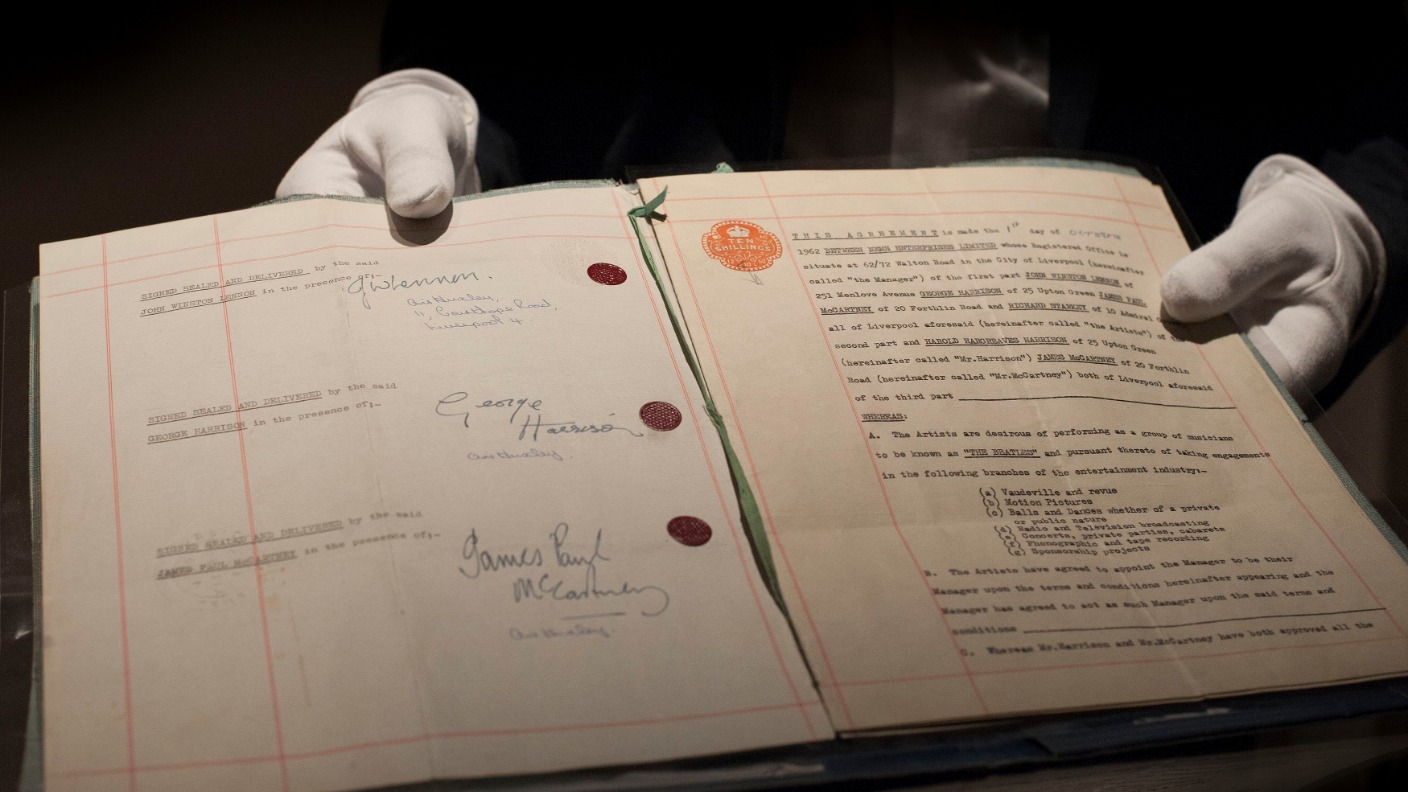 SIGNED SEALED AND DELIVERED by the said
JOHN WINSTON LENNON in the presence of:-
JWLennon.
Liverpool 4.
SIGNED SEALED AND DELIVERED by the said
GEORGE HARRISON in the presence of:-
George
Harrison
SIGNED SEALED AND DELIVERED by the said
JAMES PAUL McCARTNEY in the presence of:-
James Paul
McCartney
TEN
SHILLINGS
THIS AGREEMENT is made the 1st day of October
1962 BETWEEN NEMS ENTERPRISES LIMITED whose Registered Office is
situate at 62/72 Walton Road in the City of Liverpool (hereinafter
called "the Manager") of the first part JOHN WINSTON LENNON of
251 Menlove Avenue GEORGE HARRISON of 25 Upton Green JAMES PAUL
McCARTNEY of 20 Forthlin Road and RICHARD STARKEY of 10 Admiral
all of Liverpool aforesaid (hereinafter called "the Artists") of the
second part and HAROLD HARGREAVES HARRISON of 25 Upton Green
(hereinafter called "Mr.Harrison") JAMES McCARTNEY of 20 Forthlin
Road (hereinafter called "Mr.McCartney") both of Liverpool aforesaid
of the third part
WHEREAS:
A. The Artists are desirous of performing as a group of musicians
to be known as "THE BEATLES" and pursuant thereto of taking engagements
in the following branches of the entertainment industry:-
(a) Vaudeville and revue
(b) Motion Pictures
(c) Balls and Dances whether of a private
or public nature
(d) Radio and Television broadcasting
(e) Concerts, private parties, cabarets
(f) Phonographic and tape recording
(g) Sponsorship projects
B. The Artists have agreed to appoint the Manager to be their
Manager upon the terms and conditions hereinafter appearing and the
Manager has agreed to act as such Manager upon the said terms and
conditions
C. Whereas Mr.Harrison and Mr.McCartney have both approved all the